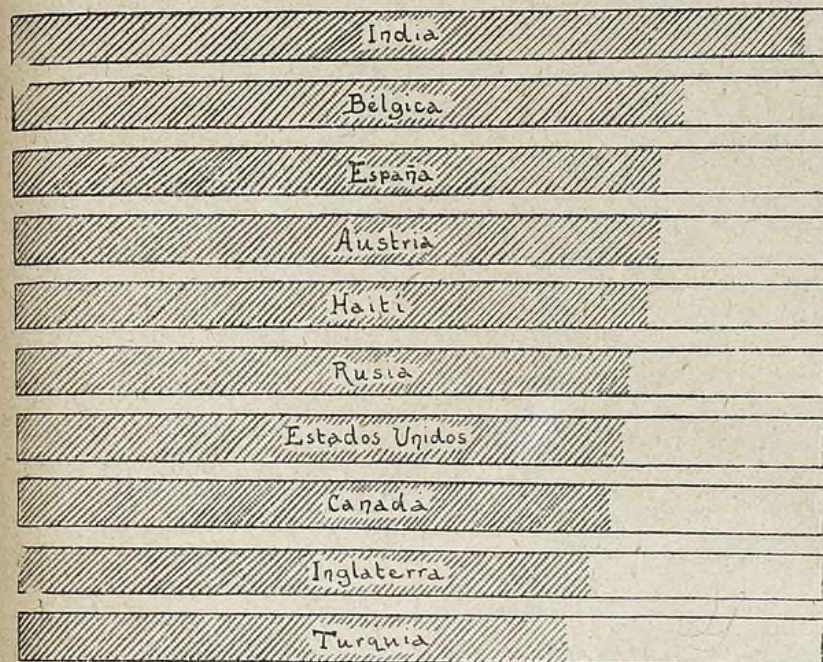 India
Bélgica
España
Austria
Haití
Rusia
Estados Unidos
Canadá
Inglaterra
Turquía